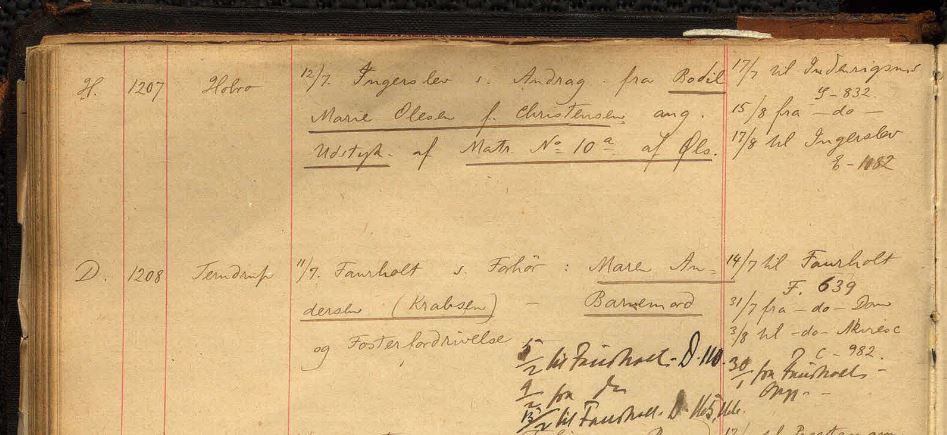 H. 1207 Hobro 12/7. Ingerslev s. Andrag. fra Bodil
Marie Olesen f. Christensen ang.
Udstyk. af Matr. No 10a af Øls.
17/7 til Indenrigsmin
G-832
15/8 fra -do-
17/8 til Ingerslev
E-1182
D. 1208 Terndrup 11/7. Faurholt s. Forhör: Maren An-
dersen (Krabsen) - Barnemord
og Fosterfordrivelse
14/7 til Faurholt
F. 639
31/7 fra -do- Dom
3/8 til -do-
C-982.
30/1 fra Faurholt -
5/2 til Faurholt - D. 110.
9/2 fra do
13/2 til Faurholt. D 165,